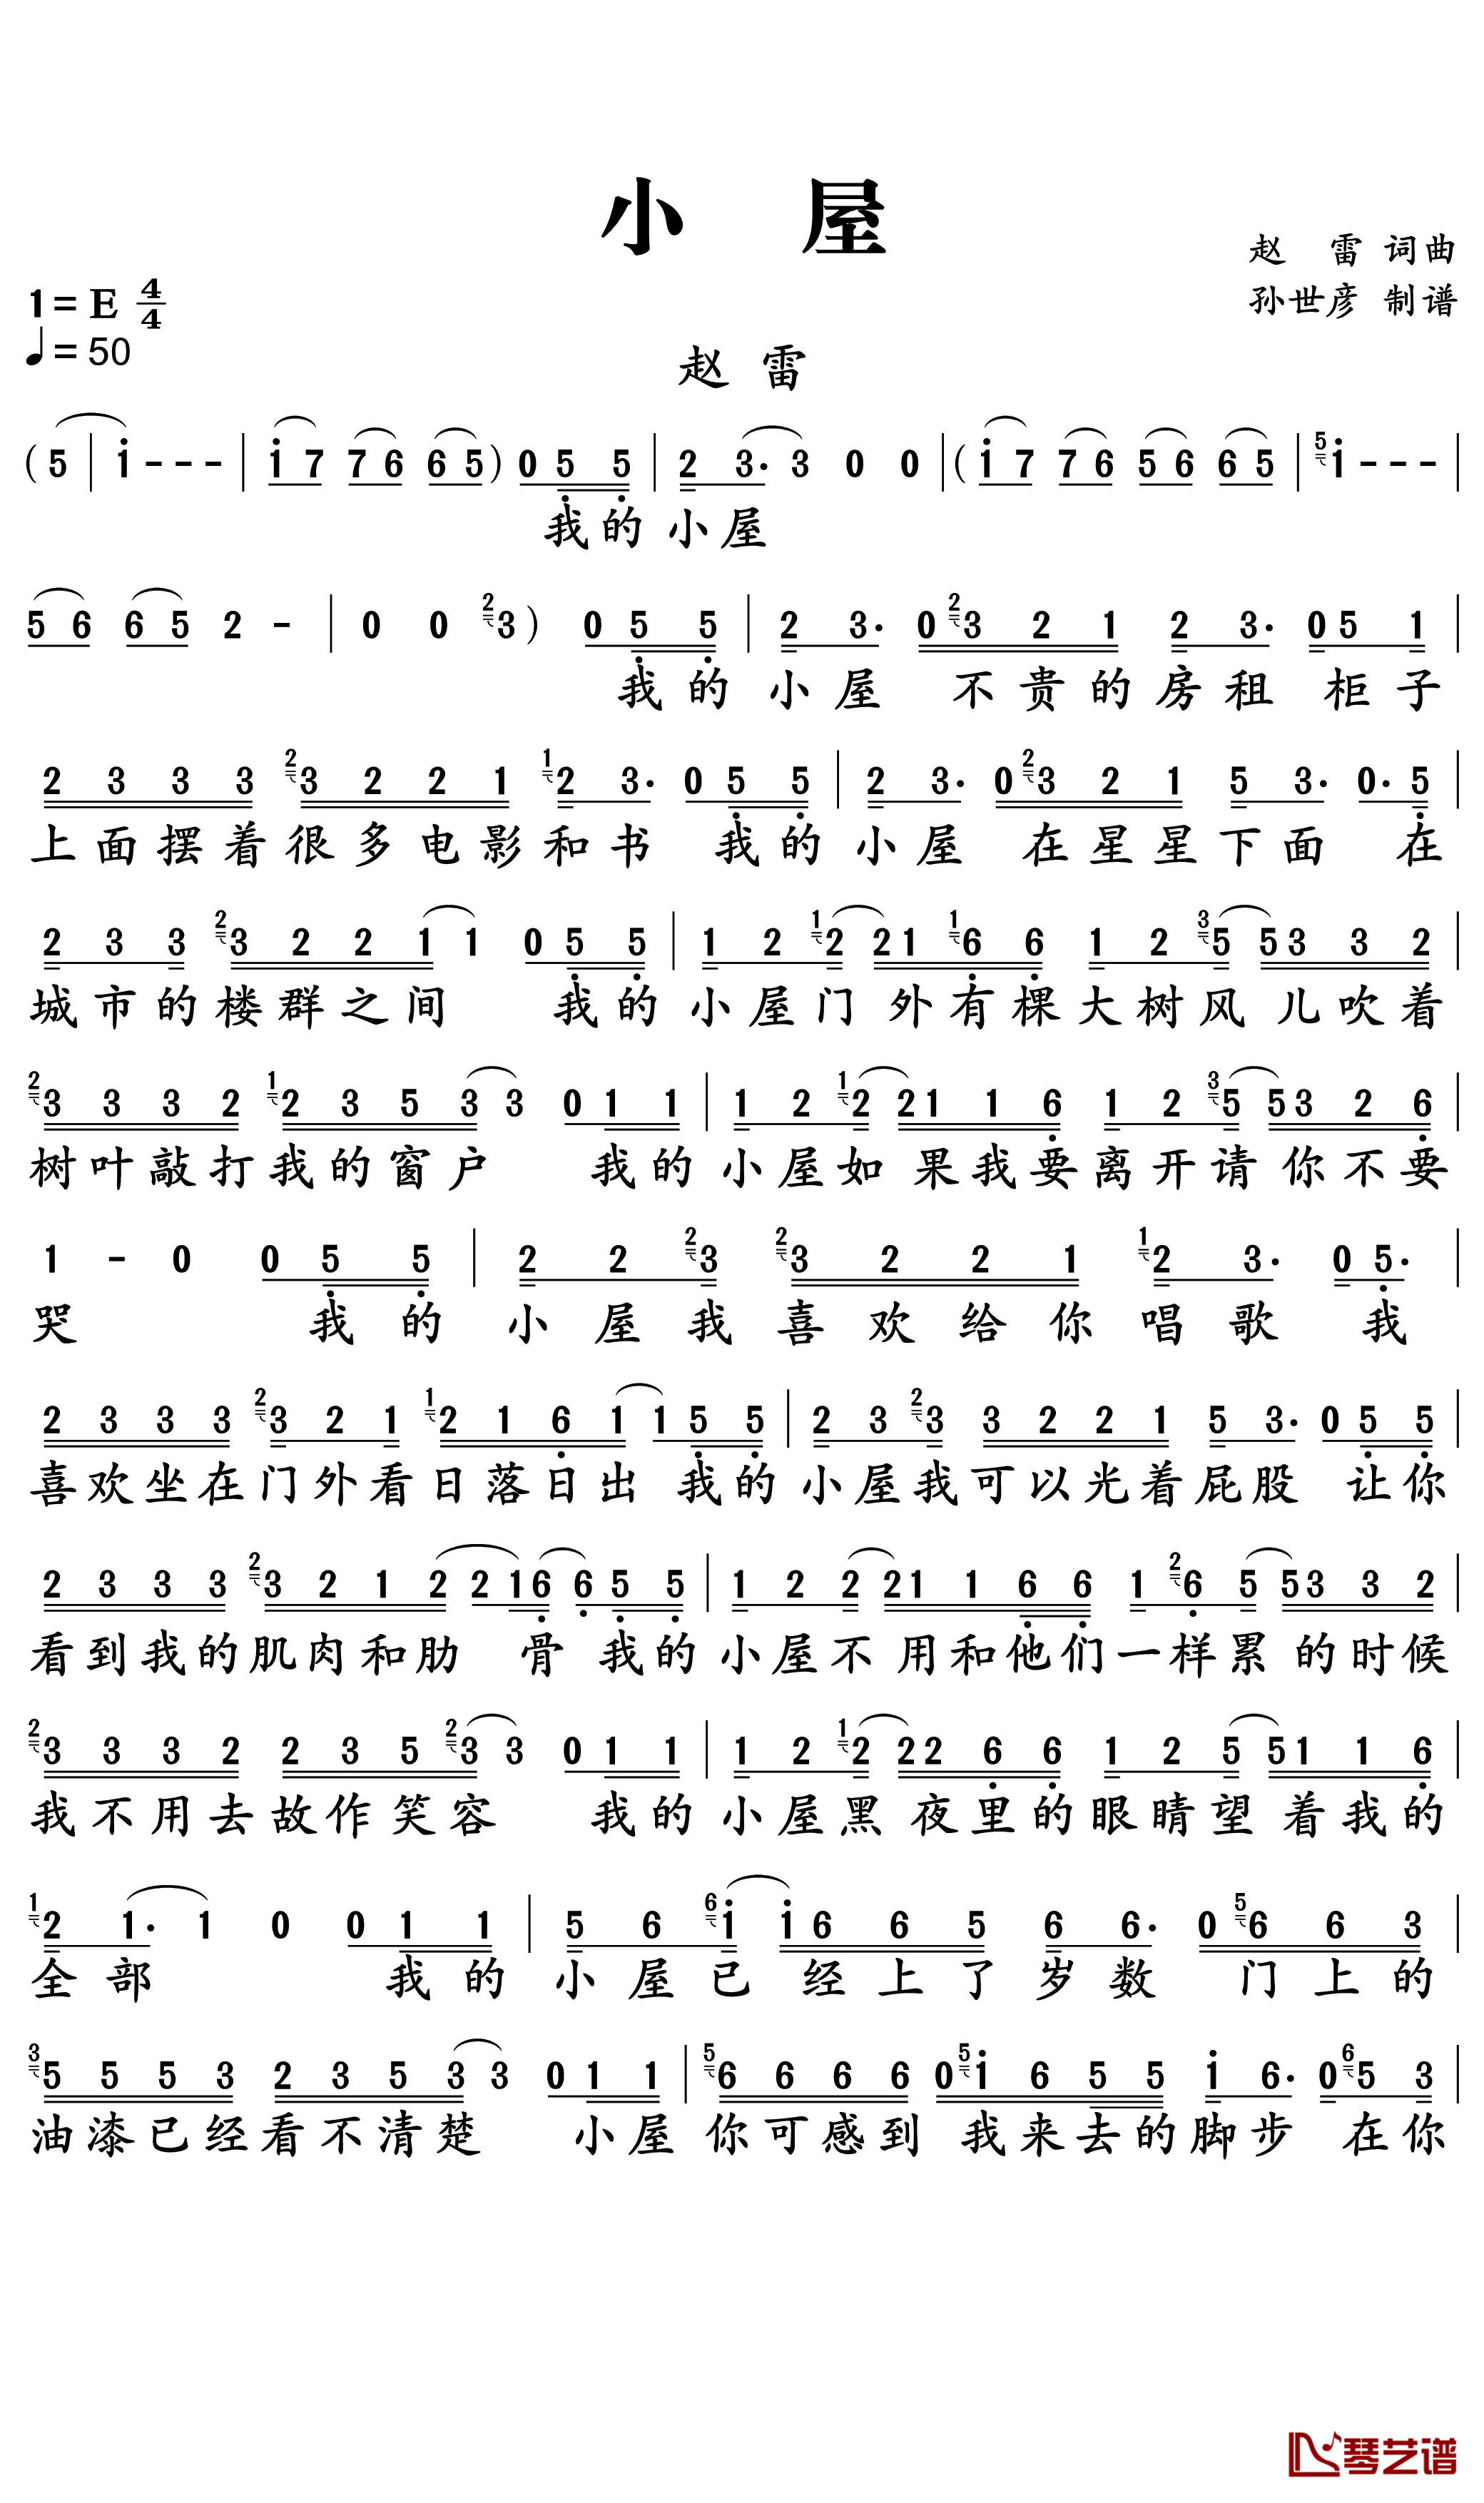 小 屋
赵 雷 词曲
1=E 4/4
孙世彦 制谱
♩=50
赵 雷
( 5 | i - - - | i 7 7 6 6 5 ) 0 5 5 | 2 3. 3 0 0 | ( i 7 7 6 5 6 6 5 | 5 i - - - |
我的小屋
5 6 6 5 2 - | 0 0 2 3 ) 0 5 5 | 2 3. 0 2 3 2 1 2 3. 0 5 1 |
我的小屋 不贵的房租 柜子
2 3 3 3 2 3 2 2 1 1 2 3. 0 5 5 | 2 3. 0 2 3 2 1 5 3. 0. 5 |
上面摆着很多电影和书 我的小屋 在星星下面 在
2 3 3 2 3 2 2 1 1 0 5 5 | 1 2 1 2 2 1 1 6 6 1 2 3 5 5 3 3 2 |
城市的楼群之间 我的小屋门外有棵大树风儿吹着
2 3 3 3 2 1 2 3 5 3 3 0 1 1 | 1 2 1 2 2 1 1 6 1 2 3 5 5 3 2 6 |
树叶敲打我的窗户 我的小屋如果我要离开请你不要
1 - 0 0 5 5 | 2 2 2 3 2 3 2 2 1 1 2 3. 0 5. |
哭 我的小屋我喜欢给你唱歌 我
2 3 3 3 2 3 2 1 1 2 1 6 1 1 5 5 | 2 3 2 3 3 2 2 1 5 3. 0 5 5 |
喜欢坐在门外看日落日出 我的小屋我可以光着屁股 让你
2 3 3 3 2 3 2 1 2 2 1 6 6 5 5 | 1 2 2 2 1 1 6 6 1 2 6 5 5 3 3 2 |
看到我的肌肉和肋 骨 我的小屋不用和他们一样累的时候
2 3 3 3 2 2 3 5 2 3 3 0 1 1 | 1 2 1 2 2 2 6 6 1 2 5 5 1 1 6 |
我不用去故作笑容 我的小屋黑夜里的眼睛望着我的
1 2 1. 1 0 0 1 1 | 5 6 6 i i 6 6 5 6 6. 0 5 6 6 3 |
全部 我的小屋已经上了岁数 门上的
3 5 5 5 3 2 3 5 3 3 0 1 1 | 5 6 6 6 6 0 5 i 6 5 5 i 6. 0 6 5 3 |
油漆已经看不清楚 小屋你可感到 我来去的脚步 在你
琴艺谱